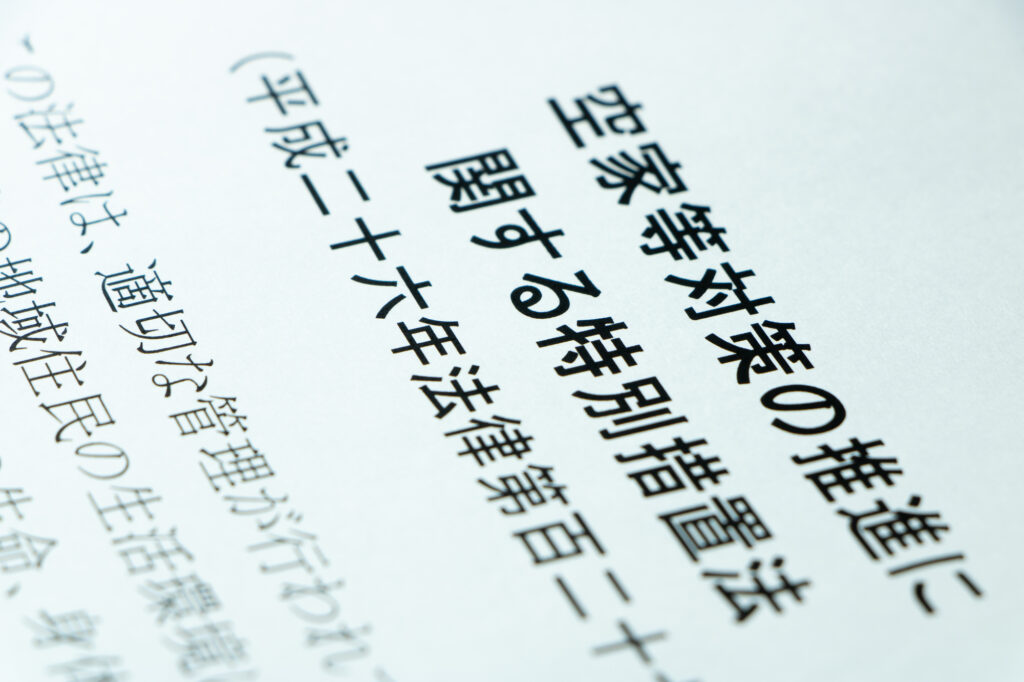 空家等対策の推進に
関する特別措置法
(平成二十六年法律第百二十
の法律は、適切な管理が行われて
の地域住民の生活環境
生命、身体